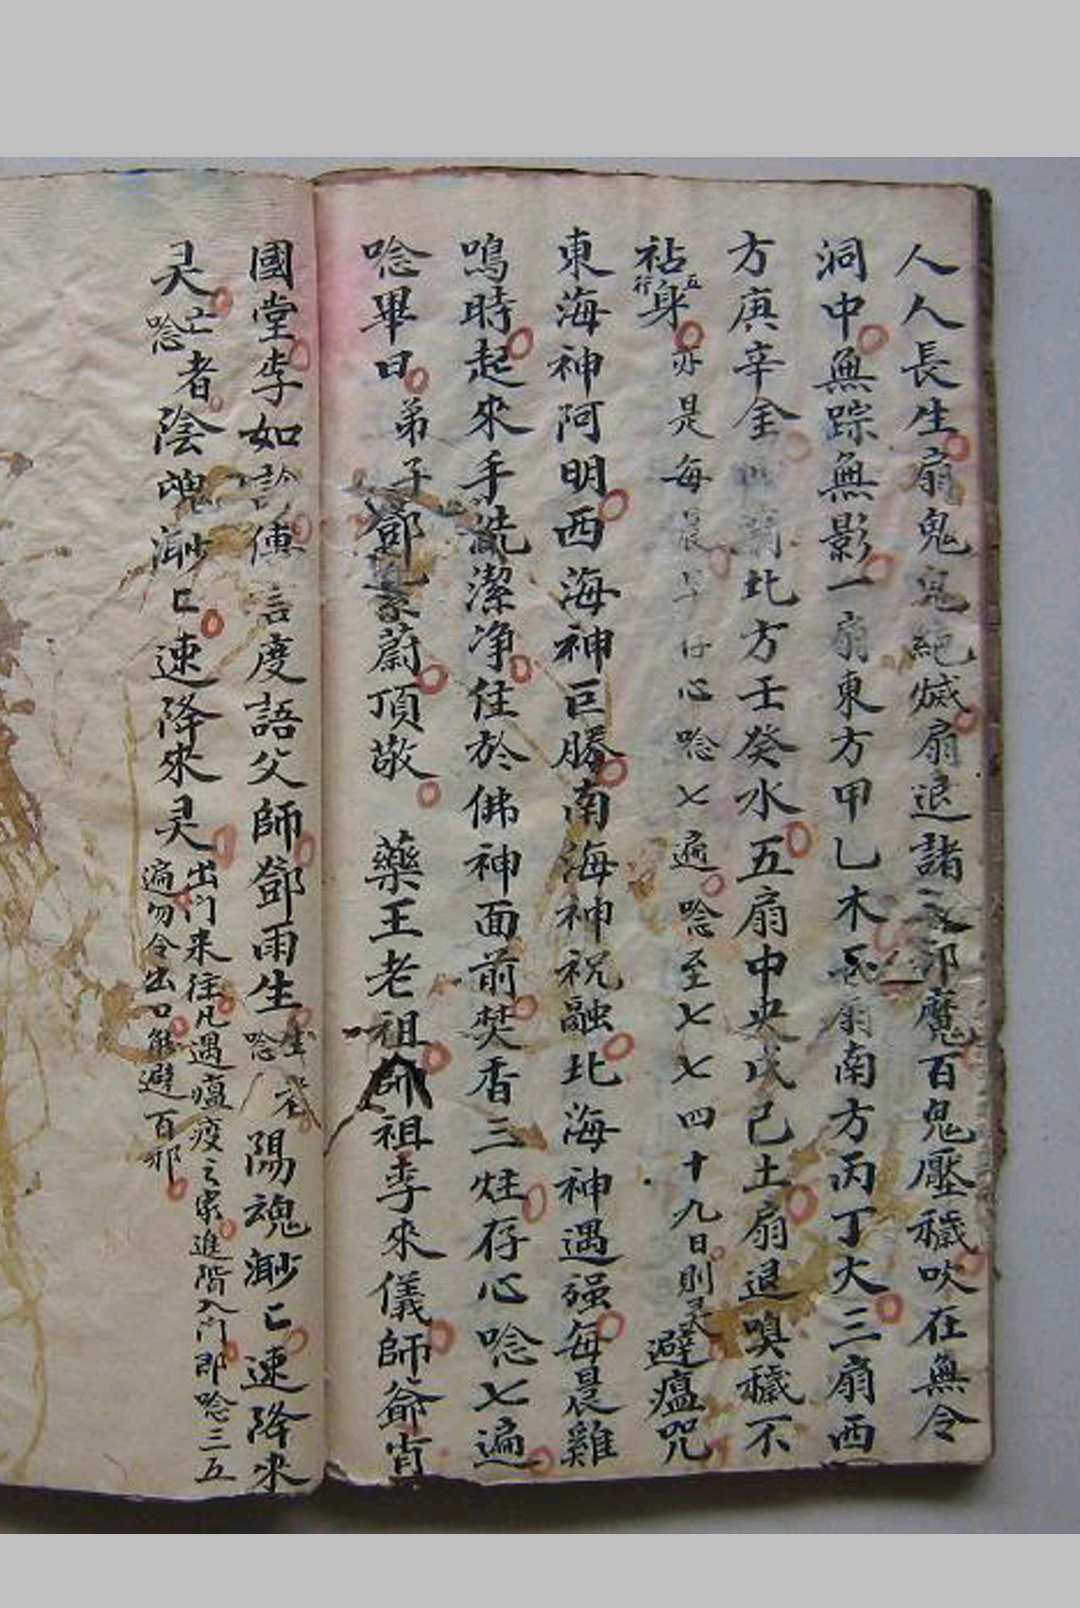 人人長生扇鬼鬼絕滅扇退諸邪魔百鬼壓穢吹在無令
洞中無踪無影一扇東方甲乙木二扇南方丙丁火三扇西
方庚辛金四扇北方壬癸水五扇中央戊己土扇退嗅穢不
祜身五行亦是每晨早仔心唸七遍唸至七七四十九日則灵避瘟咒
東海神阿明西海神巨勝南海神祝融北海神遇强每晨雞
鳴時起來手洗潔净徃於佛神面前焚香三炷存心唸七遍
唸畢曰弟子鄧蔚頂敬 藥王老祖師祖李來儀師爺肖
國堂李如 傅言度語父師鄧雨生唸生者陽魂渺亡速降來
灵唸亡者陰魂渺亡速降來灵
出門来往凡遇瘟疫之家進階入门即唸三五
遍勿令出口能避百邪